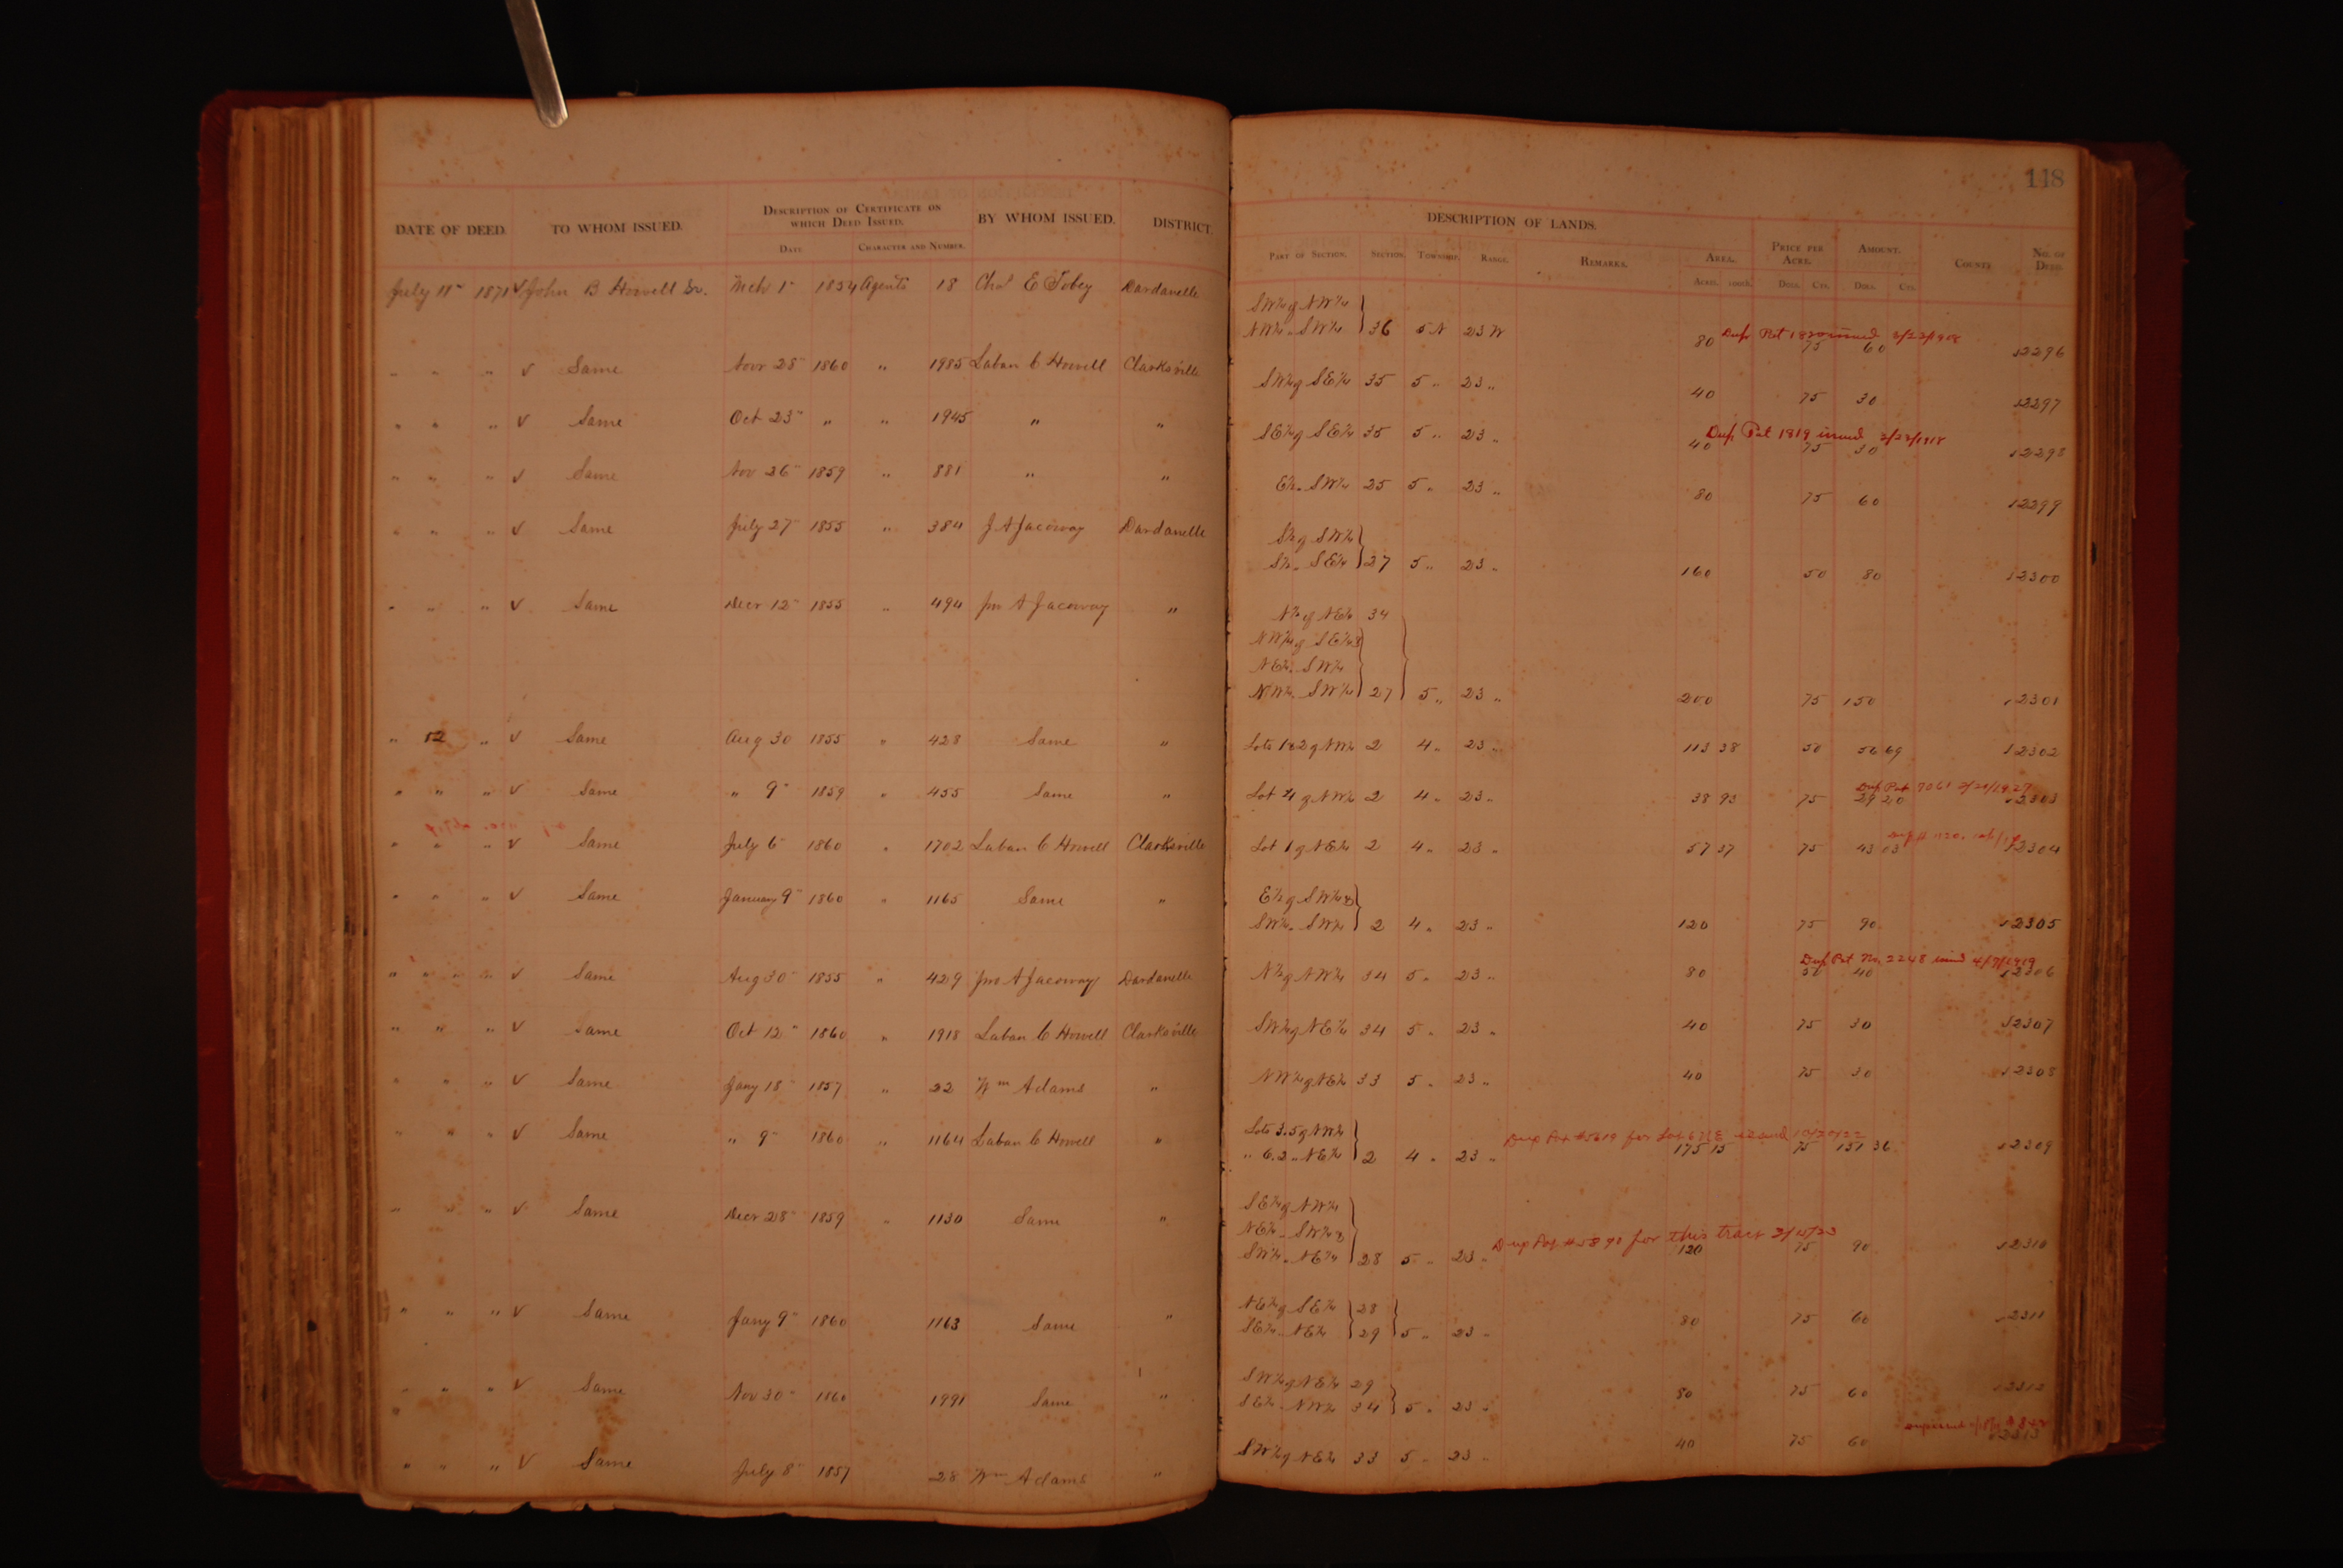 118
DATE OF DEED. TO WHOM ISSUED. DESCRIPTION OF CERTIFICATE ON WHICH DEED ISSUED. BY WHOM ISSUED. DISTRICT. DESCRIPTION OF LANDS. PRICE PER ACRE. AMOUNT. COUNTY NO. OF DEED.
DATE CHARACTER AND NUMBER. PART OF SECTION. SECTION. TOWNSHIP. RANGE. REMARKS. AREA. ACRES. 100THS. DOLL. CTS. DOLL. CTS.
July 11" 1871 ✓ John B Howell Sr. Mch 1" 1854 Agents 18 Chas E Tobey Dardanelle
SW¼ of NW¼
NW¼ " SW¼ } 36 5 N 23 W 80 75 60 12296
Dup Pat 1820 issued 2/23/1918
" " " ✓ Same Novr 28" 1860 " 1985 Laban C Howell Clarksville SW¼ of SE¼ 35 5 " 23 " 40 75 30 12297
" " " ✓ Same Oct 23" " " 1945 " " SE¼ of SE¼ 35 5 " 23 " 40 75 30 12298
Dup Pat 1819 issued 2/23/1918
" " " ✓ Same Nov 26" 1859 " 881 " " E½ " SW¼ 25 5 " 23 " 80 75 60 12299
" " " ✓ Same July 27" 1855 " 384 J A Jacoway Dardanelle S½ of SW¼
S½ " SE¼ } 27 5 " 23 " 160 50 80 12300
" " " ✓ Same Decr 12" 1855 " 494 Jno A Jacoway " N½ of NE¼ 34
NW¼ of SE¼ &
NE¼ " SW¼
NW¼ " SW¼ } 27 } 5 " 23 " 200 75 150 12301
" 12 " ✓ Same Aug 30 1855 " 428 Same " Lots 1 & 2 of NW¼ 2 4 " 23 " 113 38 50 56 69 12302
" " " ✓ Same " 9" 1859 " 455 Same " Lot 4 of NW¼ 2 4 " 23 " 38 93 75 29 20 12303
Dup Pat 7061
" " " ✓ Same July 6" 1860 " 1702 Laban C Howell Clarksville Lot 1 of NE¼ 2 4 " 23 " 57 37 75 43 03 12304
" " " ✓ Same January 9" 1860 " 1165 Same " E½ of SW¼ &
SW¼ " SW¼ } 2 4 " 23 " 120 75 90 12305
" " " " ✓ Same Aug 30" 1855 " 429 Jno A Jacoway Dardanelle N½ of NW¼ 34 5 " 23 " 80 50 40 12306
Dup Pat No. 2248 issued 4/7/1919
" " " ✓ Same Oct 12" 1860 " 1918 Laban C Howell Clarksville SW¼ of NE¼ 34 5 " 23 " 40 75 30 12307
" " " ✓ Same Jany 18" 1857 " 22 Wm Adams " NW¼ of NE¼ 33 5 " 23 " 40 75 30 12308
" " " ✓ Same " 9" 1860 " 1164 Laban C Howell " Lots 3.5 of NW¼
" 6.2 " NE¼ } 2 4 " 23 " 175 15 75 131 36 12309
Dup Pat #5619 for Lot 6 NE issued 10/20/22
" " " ✓ Same Decr 28" 1859 " 1130 Same " SE¼ of NW¼
NE¼ " SW¼ &
SW¼ " NE¼ } 28 5 " 23 " 120 75 90 12310
Dup Pat #5890 for this tract 3/15/23
" " " ✓ Same Jany 9" 1860 1163 Same " NE¼ of SE¼ } 28
SE¼ " NE¼ } 29 } 5 " 23 " 80 75 60 12311
" " " ✓ Same Nov 30" 1860 1991 Same " SW¼ of NE¼ 29
SE¼ " NW¼ 34 } 5 " 23 " 80 75 60 12312
" " " ✓ Same July 8" 1857 28 Wm Adams " SW¼ of NE¼ 33 5 " 23 " 40 75 60 12313